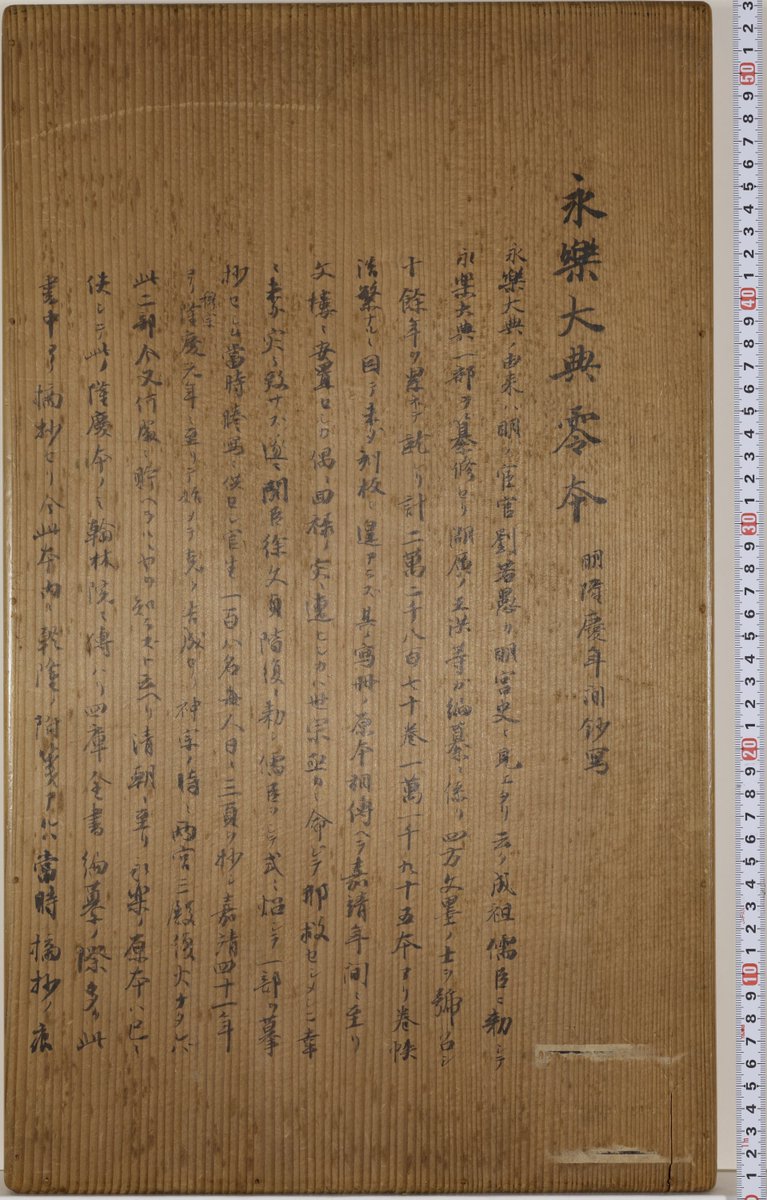 永樂大典零本 明隆慶年間鈔寫
永樂大典ノ由来ハ明ノ宦官劉若愚ノ明宮史ニ見エタリ云ク成祖儒臣ニ勅シテ
永樂大典一部ヲ纂修セリ湖廣ノ王洪等ガ編纂ニ係リ四方文墨ノ士ヲ號召シ
十餘年ヲ累ネテ就レリ計二萬二千八百七十卷一萬一千九十五本ナリ卷帙
浩繁ナルニ因テ未ダ刻板ニ遑アラズ其ノ寫冊ノ原本相傳ヘテ嘉靖年間ニ至リ
文樓ニ安置セシガ偶ニ回祿ノ災ニ遭ヒシカバ世宗亟カニ命ジテ那救セシメシニ幸
ニ未ダ灾ヲ致サズ遂ニ閣臣徐文貞階復ニ勅シ儒臣ヲシテ式ニ照シテ一部ヲ摹
抄セシム當時謄寫ニ供セシ官生一百八名每人日ニ三頁ヲ抄シ嘉靖四十一年
ヨリ隆慶元年ニ至リテ始メテ克ク告成セリ神宗ノ時ニ兩宮三殿復火ナタルハ
此二部今又何處ニ貯ヘラルヽヤヲ知ラズト云ヘリ清朝ニ至リ永樂ノ原本ハ已ニ
佚シテ此ノ隆慶本ノミ翰林院ニ傳ハリ四庫全書編纂ノ際多ク此
書中ヨリ摘抄セリ今此本內ニ乾隆ノ附箋アルハ當時摘抄ノ痕